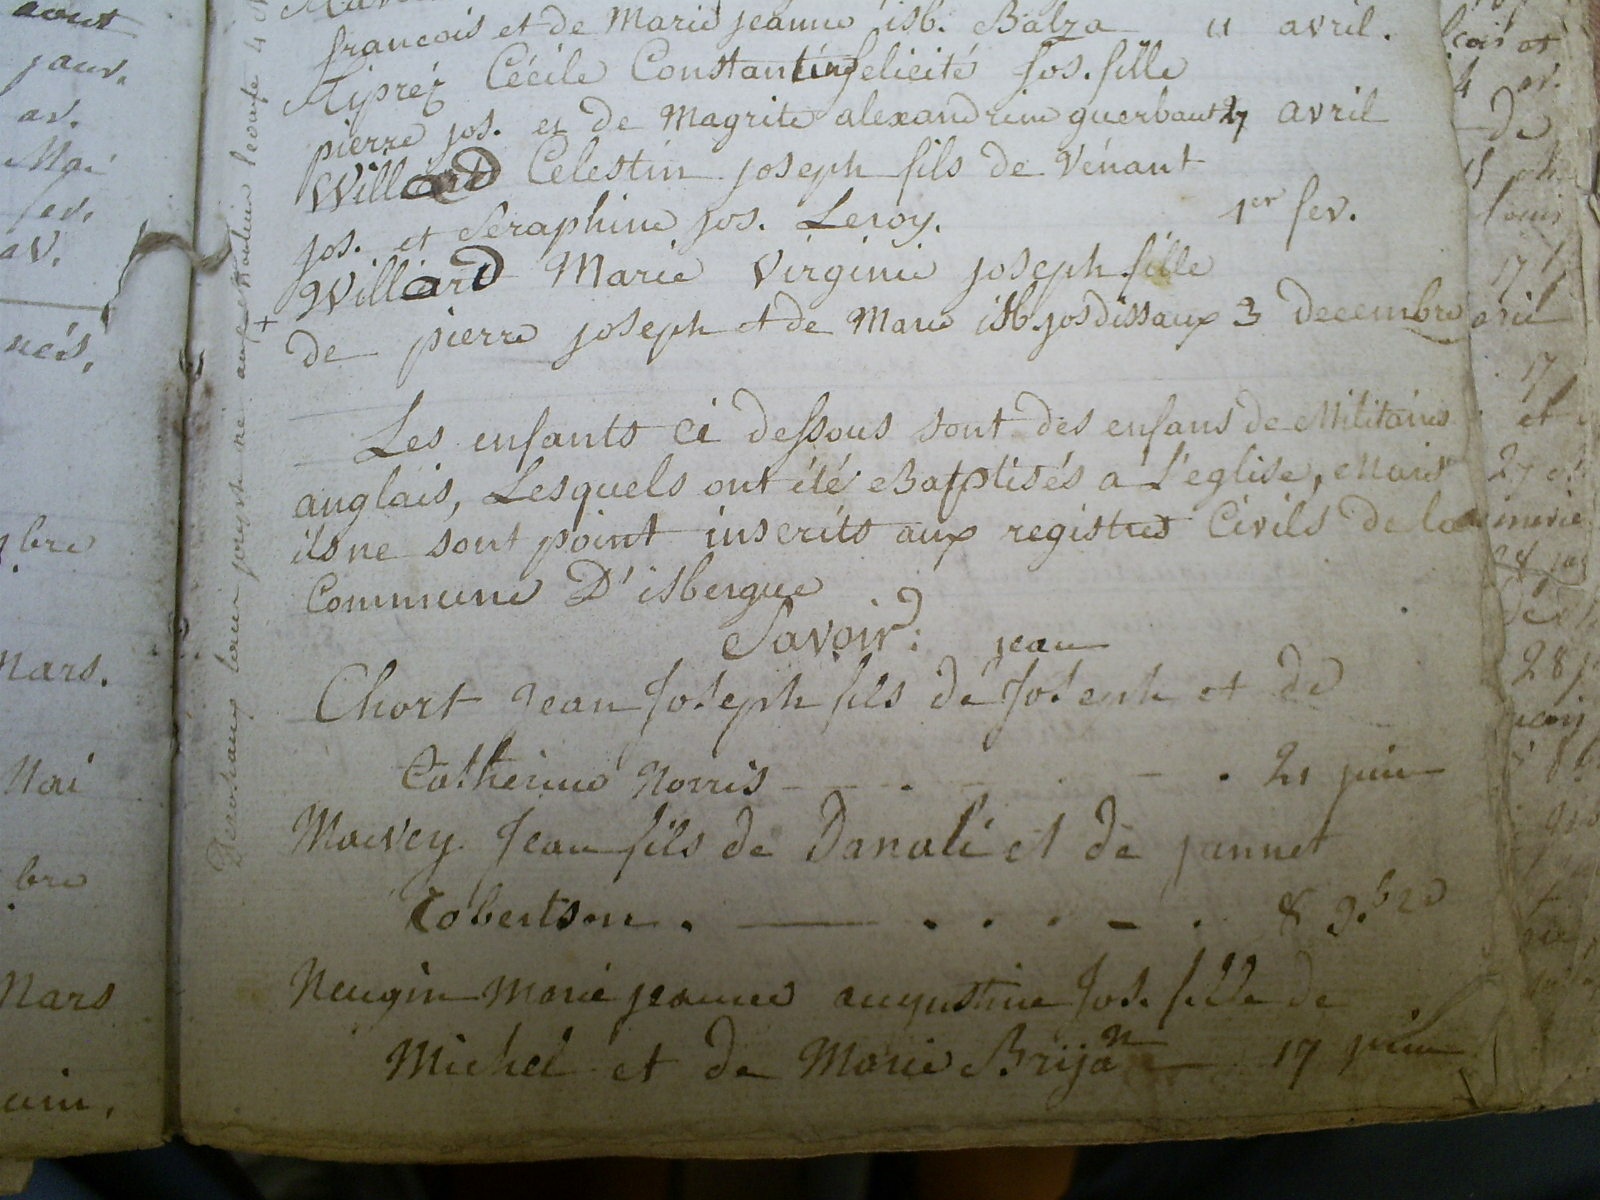 francois et de Marie jeanne isb. Balza 11 avril.
Cécile Constantin felicité Jos. fille
pierre jos. et de Magrite alexandrine guerbaut 27 avril
Willard Celestin joseph fils de Vénant
jos. et Seraphine jos. Leroy. 1er fev.
Williard Marie Virginie joseph fille
+
de pierre joseph et de Marie isb. jos dissaux 3 decembre
Les enfants ci dessous sont des enfans de Militaires
anglais, Lesquels ont été Baptisés a L'eglise, Mais
ils ne sont point inscrits aux registres Civils de la
Commune D'isbergue
Savoir:
jean
Chort Jean Joseph fils de Joseph et de
Catherine Norris - - - . 21 juin
Macvey. Jean fils de Danale et de jannet
Robertson. - . . . - . 8 9.bre
Neugin Marie jeanne augustine Jos. fille de
Michel et de Marie Brijan 17 juin
aout
janv.
av.
Mai
fev.
av.
nés.
bre
Mars.
Mai
bre
Mars
et
av.
de
17
et
17
28